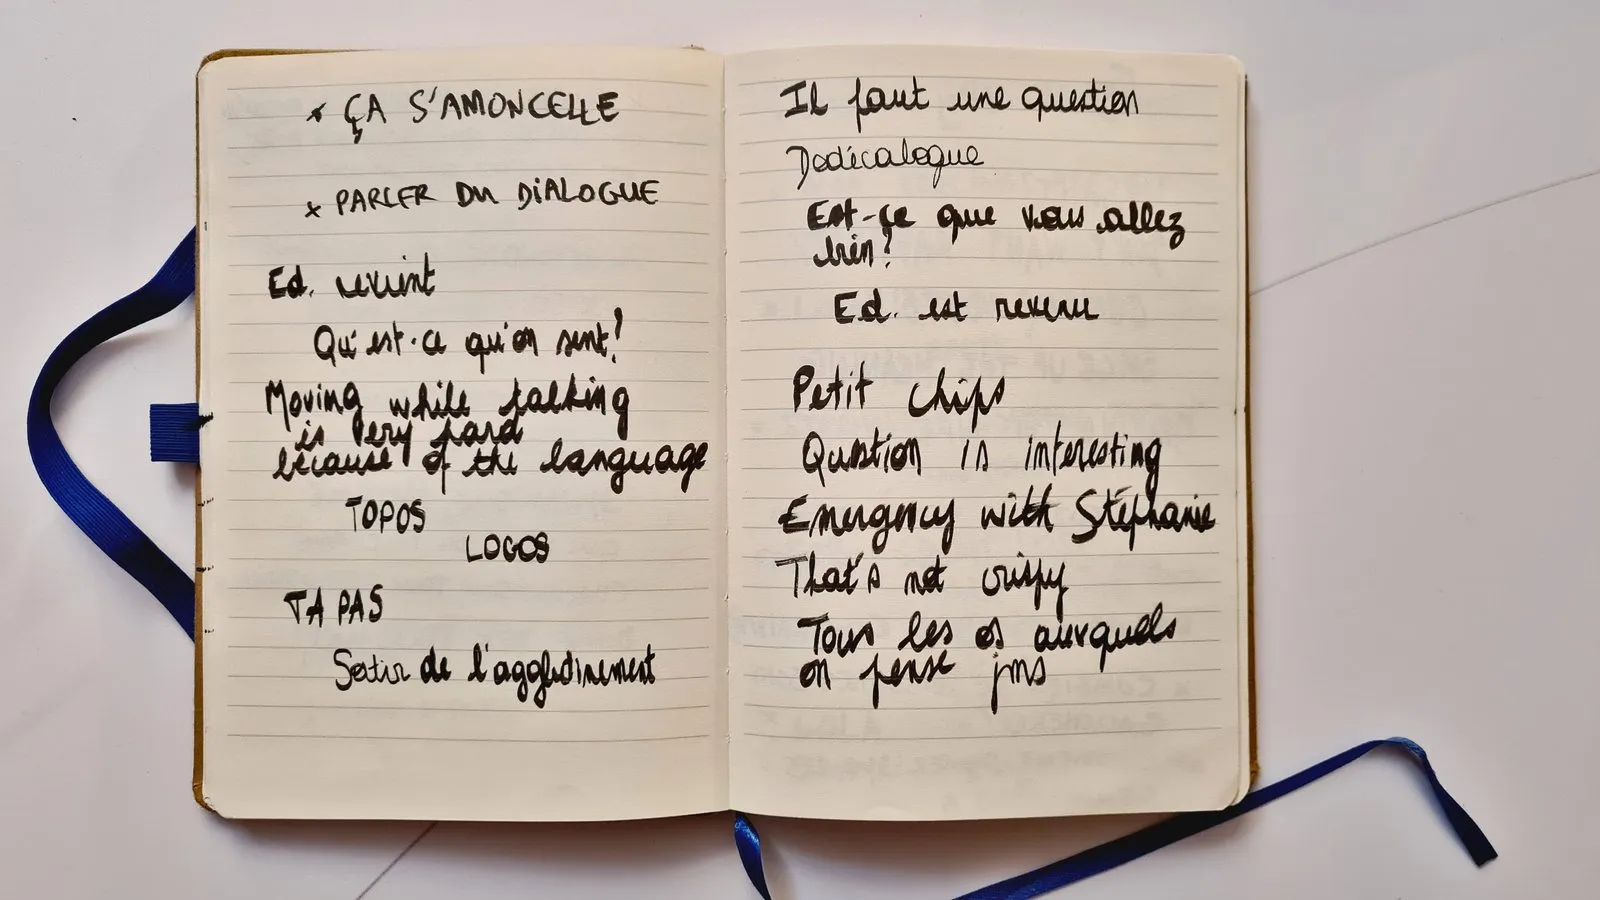 × ÇA S'AMONCELLE
× PARLER DU DIALOGUE
Ed. revient
Qu'est-ce qu'on sent?
Moving while talking
is very hard
because of the language
TOPOS
LOGOS
TA PAS
Sortir de l'agglutinement
Il faut une question
Dodécalogue
Est-ce que vous allez
bien?
Ed. est revenu
Petit chips
Question is interesting
Emergency with Stéphanie
That's not crispy
Tous les os auxquels
on pense jms